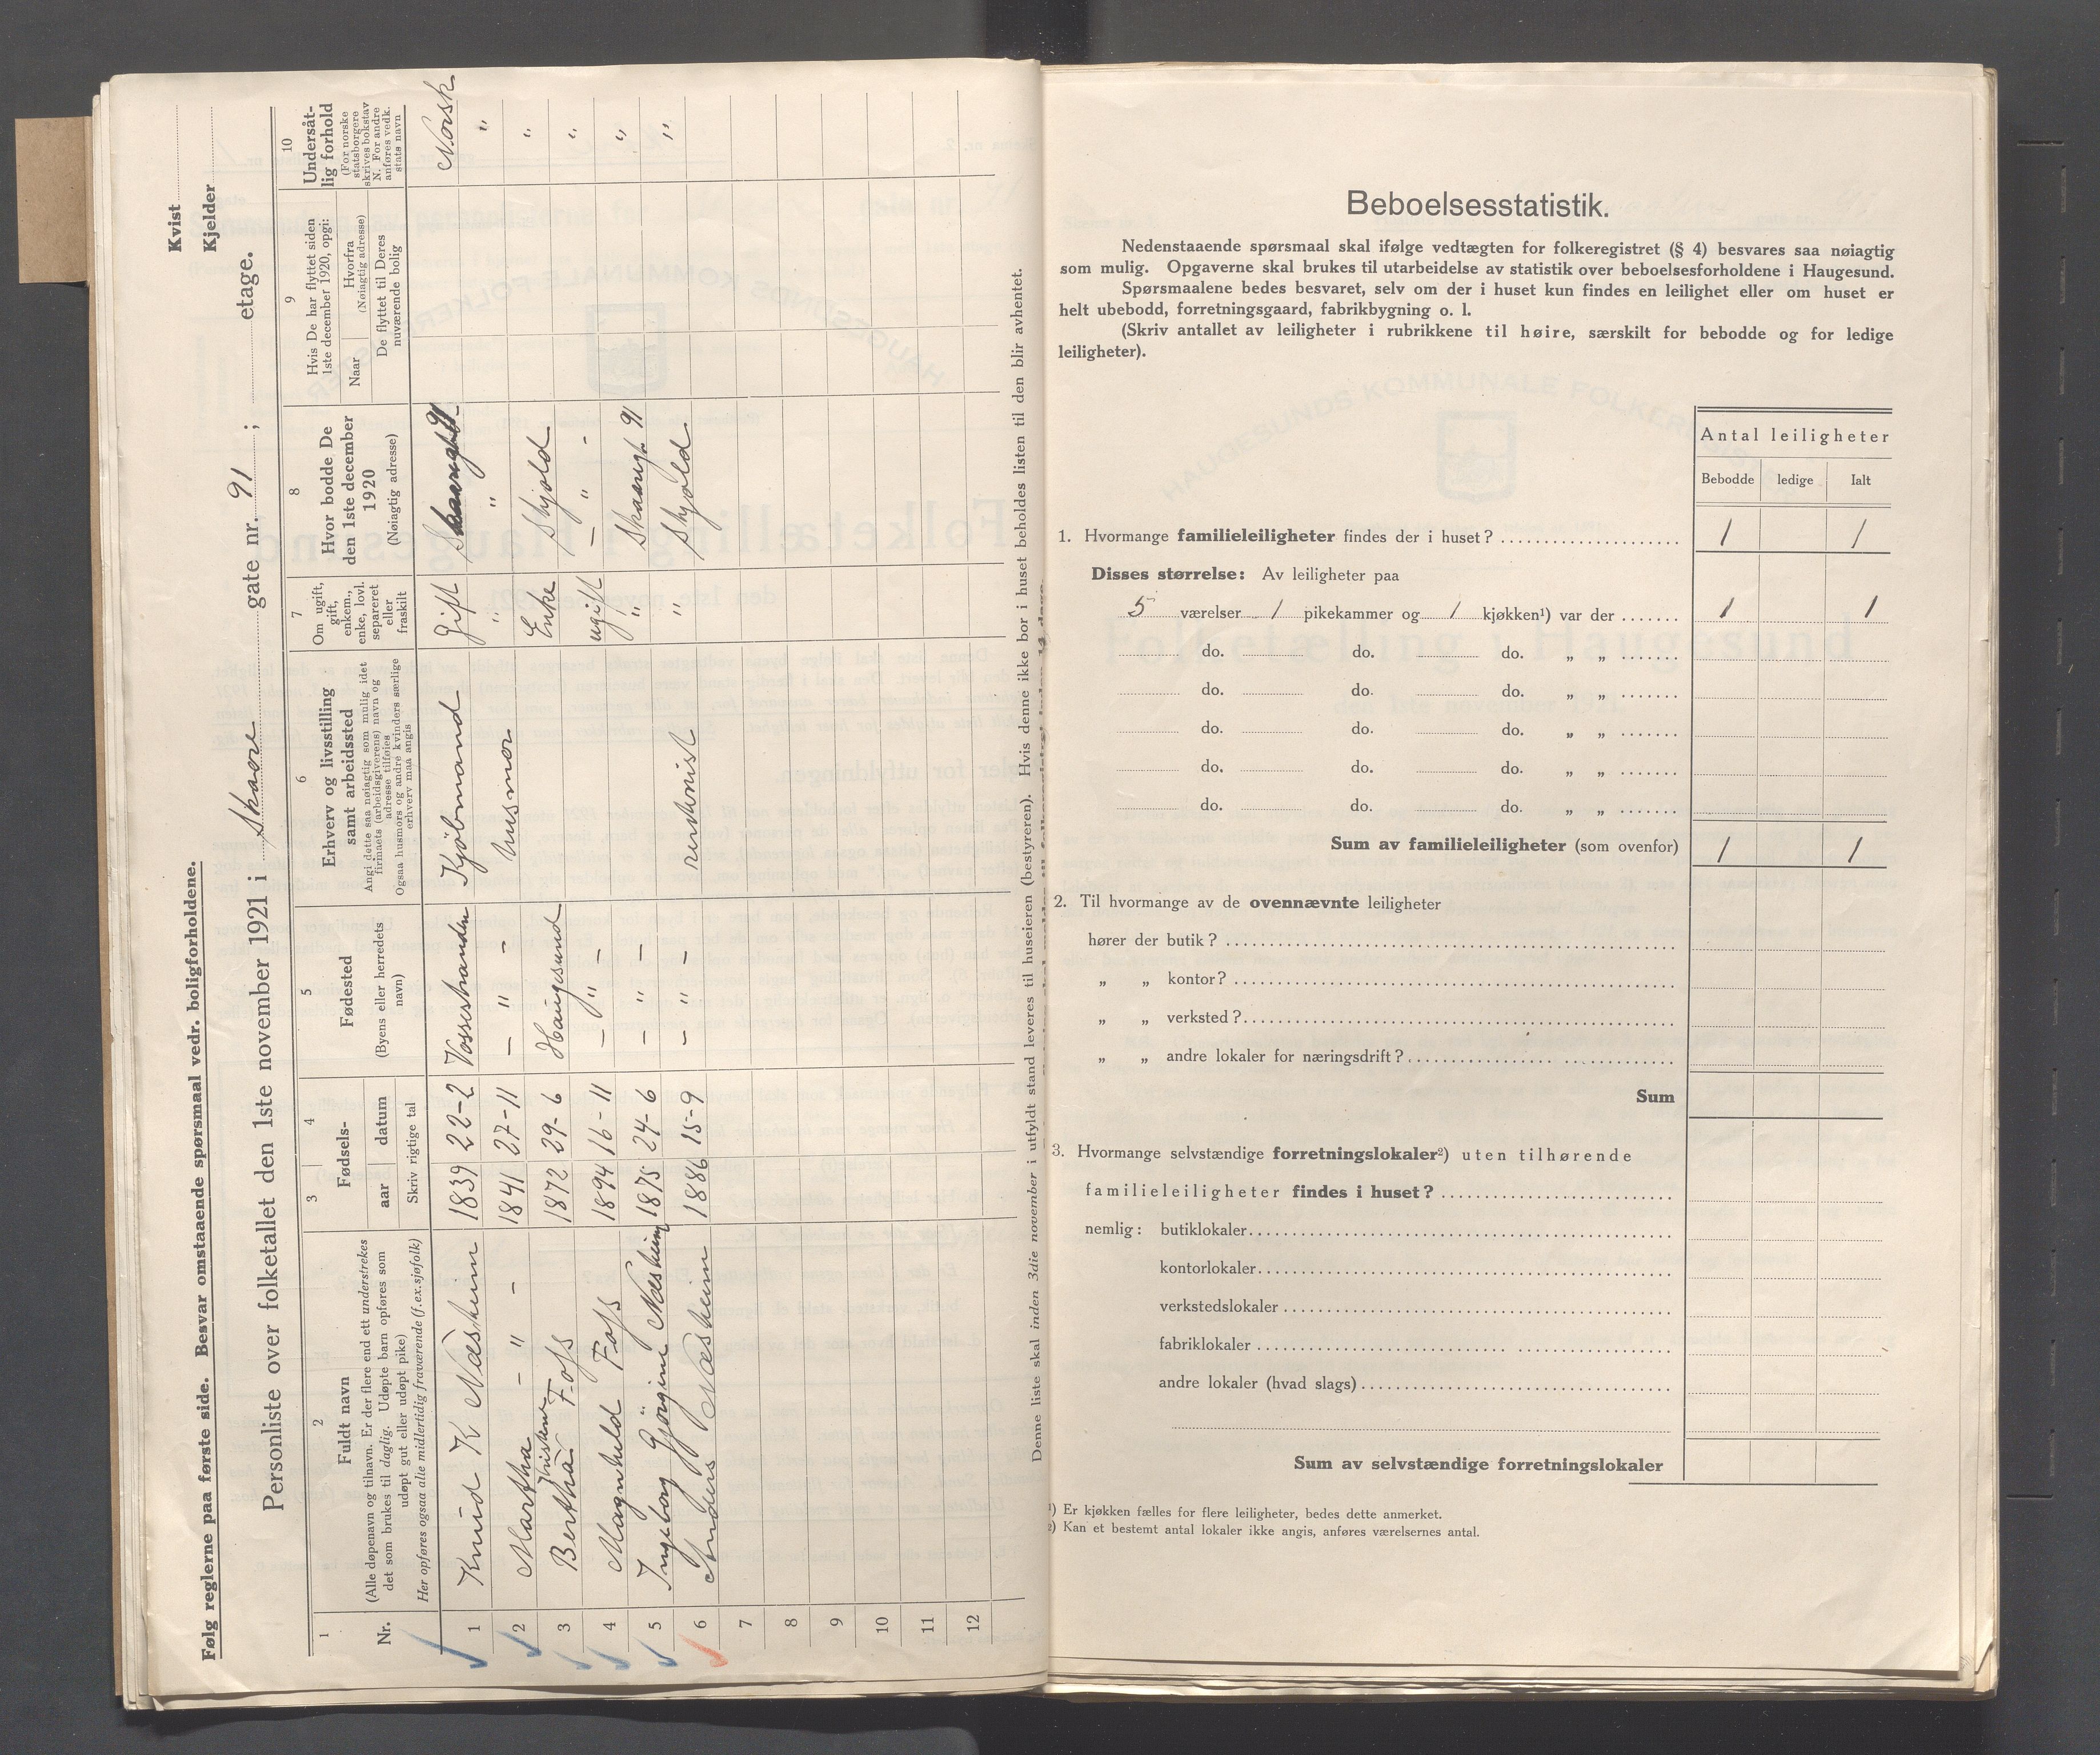 Kvist
Kjelder
Følg reglerne paa første side. Besvar omstaaende spørsmaal vedr. boligforholdene.
Personliste over folketallet den 1ste november 1921 i Skaare gate nr. 91 ; etage.
1 2 3 4 5 6 7 8 9 10
Nr.
Fuldt navn
(Alle døpenavn og tilnavn. Er der flere end ett understrekes
det som brukes til daglig. Udøpte barn opføres som
udøpt gut eller udøpt pike)
Her opføres ogsaa alle midlertidig fraværende (f.ex.sjøfolk)
Fødsels-
aar datum
Skriv rigtige tal
Fødested
(Byens eller herredets
navn)
Erhverv og livsstilling
samt arbeidssted
Angi dette saa nøiagtig som mulig idet
firmaets (arbeidsgiverens) navn og
adresse tilføies
Ogsaa husmors og andre kvinders særlige
erhverv maa angis
Om ugift,
gift,
enkem.,
enke, lovl.
separeret
eller
fraskilt
Hvor bodde De
den 1ste december
1920
(Nøiagtig adresse)
Hvis De har flyttet siden
1ste december 1920, opgi:
Naar
Hvorfra
(Nøiagtig adresse)
De flyttet til Deres
nuværende bolig
Undersåt-
lig forhold
(For norske
statsborgere
skrives bokstav
N. For andre
anføres vedk.
stats navn
1 Knud K Næsheim 1839 22-2 Vossestranden Kjøbmand gift 91 Norsk
2 Martha - " - 1841 27-11 - " - husmor " " "
3 Bertha Foss 1872 29-6 Haugesund Enke Skjold "
4 Magnhild Foss 1894 16-11 - " - ugift - " - "
5 Ingeborg Næsheim 1875 24-6 - " - " 91 "
6 Anders Næsheim 1886 15-9 - " - " Skjold "
7
8
9
10
11
12
Denne liste skal inden 3die november i utfyldt stand leveres til huseieren (bestyreren). Hvis denne ikke bor i huset beholdes listen til den blir avhentet.
Beboelsesstatistik.
Nedenstaaende spørsmaal skal ifølge vedtægten for folkeregistret (§ 4) besvares saa nøiagtig
som mulig. Opgaverne skal brukes til utarbeidelse av statistik over beboelsesforholdene i Haugesund.
Spørsmaalene bedes besvaret, selv om der i huset kun findes en leilighet eller om huset er
helt ubebodd, forretningsgaard, fabrikbygning o. l.
(Skriv antallet av leiligheter i rubrikkene til høire, særskilt for bebodde og for ledige
leiligheter).
Antal leiligheter
Bebodde ledige Ialt
1. Hvormange familieleiligheter findes der i huset? 1 1
Disses størrelse: Av leiligheter paa
5 værelser 1 pikekammer og 1 kjøkken¹) var der 1 1
do. do. do. „ „
do. do. do. „ „
do. do. do. „ „
do. do. do. „ „
do. do. do. „ „
Sum av familieleiligheter (som ovenfor) 1 1
2. Til hvormange av de ovennævnte leiligheter
hører der butik?
„ „ kontor?
„ „ verksted?
„ „ andre lokaler for næringsdrift?
Sum
3. Hvormange selvstændige forretningslokaler²) uten tilhørende
familieleiligheter findes i huset?
nemlig: butiklokaler
kontorlokaler
verkstedslokaler
fabriklokaler
andre lokaler (hvad slags)
Sum av selvstændige forretningslokaler
¹) Er kjøkken fælles for flere leiligheter, bedes dette anmerket.
²) Kan et bestemt antal lokaler ikke angis, anføres værelsernes antal.